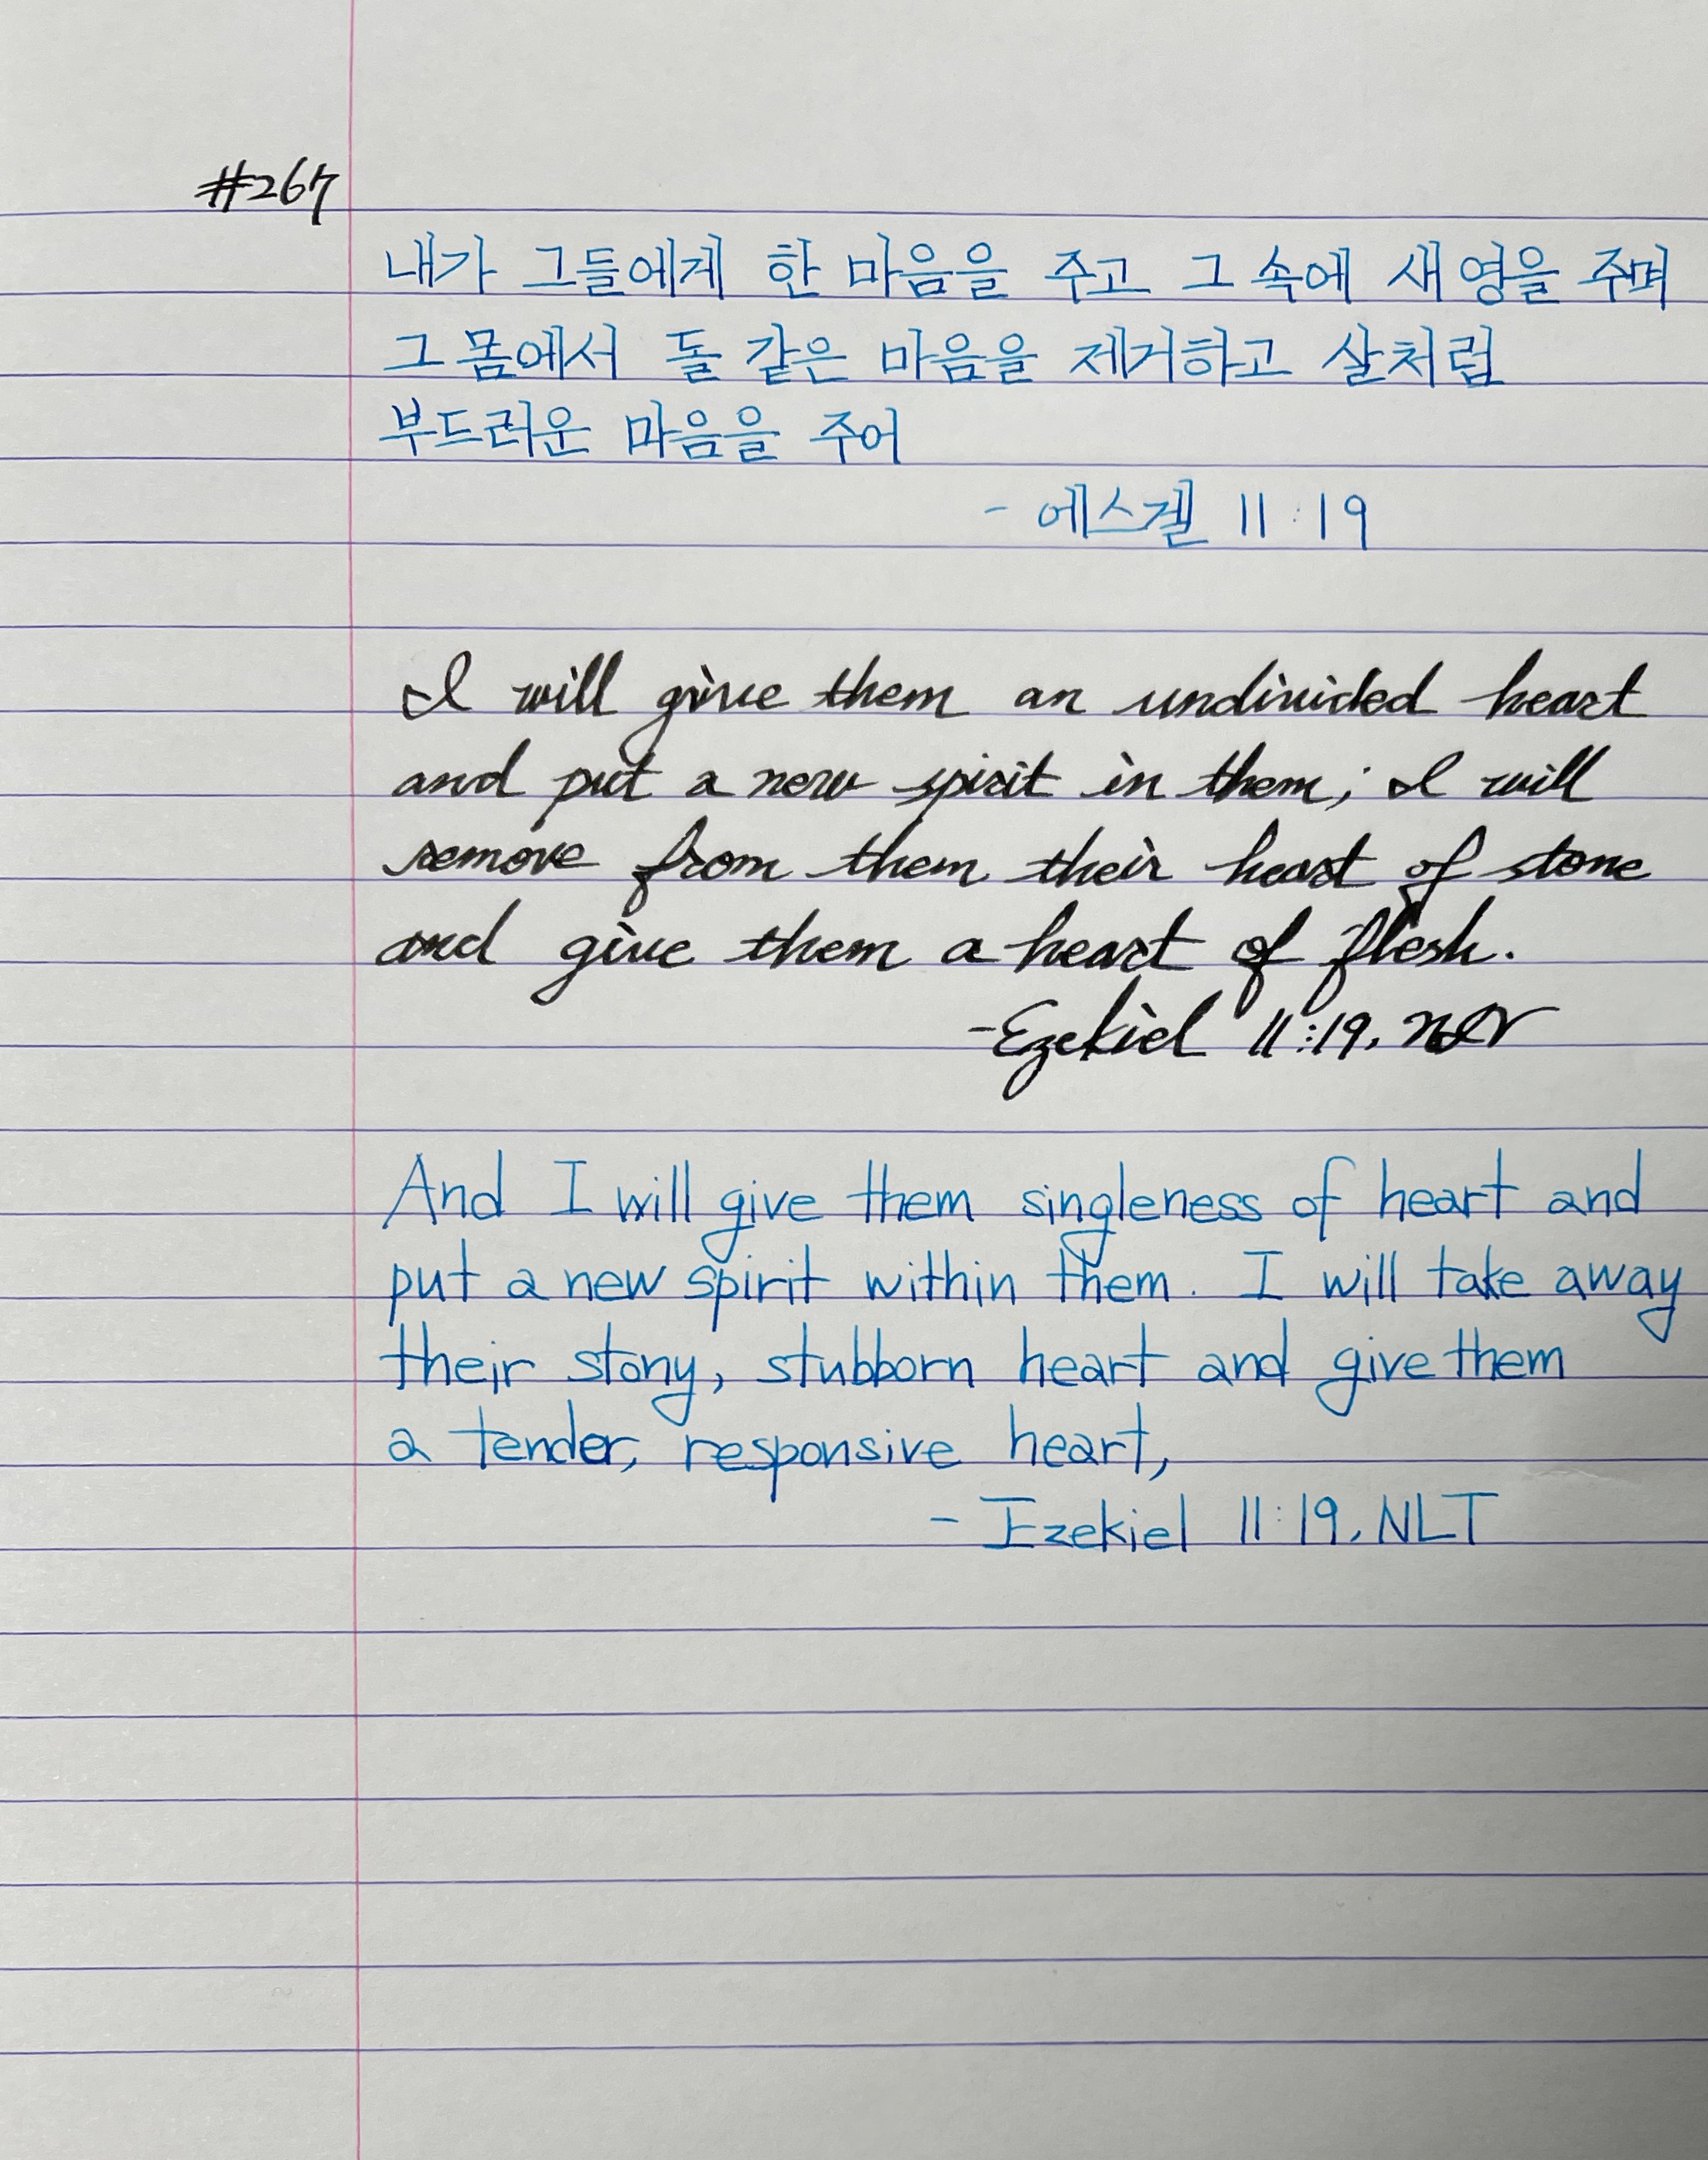 #267
내가 그들에게 한 마음을 주고 그 속에 새 영을 주며
그 몸에서 돌 같은 마음을 제거하고 살처럼
부드러운 마음을 주어
- 에스겔 11:19
I will give them an undivided heart
and put a new spirit in them; I will
remove from them their heart of stone
and give them a heart of flesh.
-Ezekiel 11:19, NIV
And I will give them singleness of heart and
put a new spirit within them. I will take away
their stony, stubborn heart and give them
a tender, responsive heart,
- Ezekiel 11:19, NLT